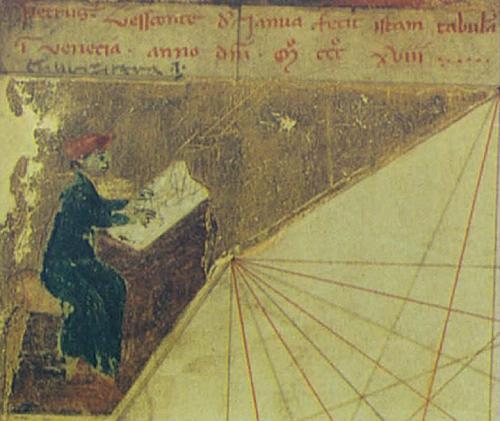 Petrus Vessconte d' Janua fecit istam tabulā
ī Venecia . anno dn̄i . m̊ ccc̊ xviii . . . . .